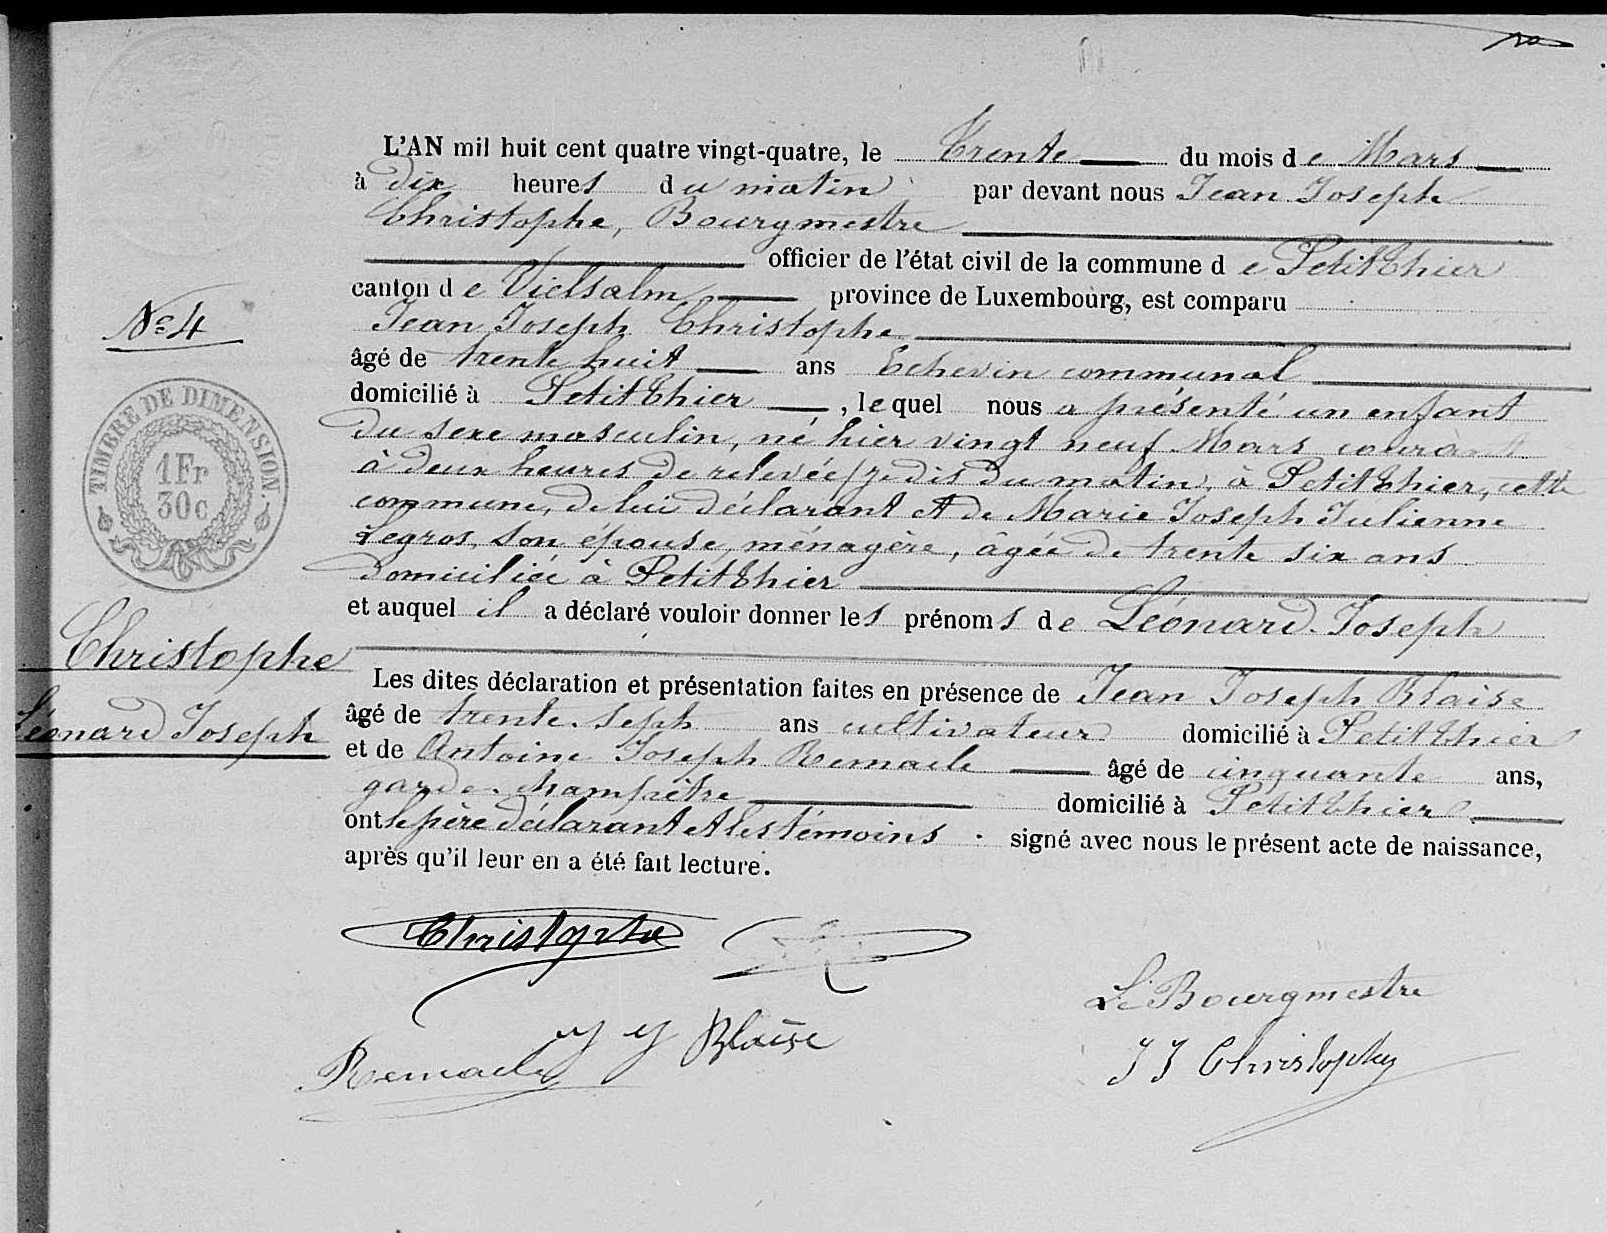 L'AN mil huit cent quatre vingt-quatre, le Trente du mois de Mars
à dix heures du matin par devant nous Jean Joseph
Christophe, Bourgmestre
officier de l'état civil de la commune de Petitthier
canton de Vielsalm province de Luxembourg, est comparu
Jean Joseph Christophe
âgé de trente huit ans Echevin communal
domicilié à Petitthier, lequel nous a présenté un enfant
du sexe masculin, né hier vingt neuf Mars courant
à deux heures de relevée, je dis du matin, à Petitthier, cette
commune, de lui déclarant et de Marie Joseph Julienne
Legros, son épouse, ménagère, âgée de trente six ans
domiciliée à Petitthier
et auquel il a déclaré vouloir donner les prénoms de Léonard Joseph
Les dites déclaration et présentation faites en présence de Jean Joseph Blaise
âgé de trente-sept ans cultivateur domicilié à Petitthier
et de Antoine Joseph Remacle âgé de cinquante ans,
garde-champêtre domicilié à Petitthier
ont le père déclarant et les témoins signé avec nous le présent acte de naissance,
après qu'il leur en a été fait lecture.
No 4
TIMBRE DE DIMENSION.
1Fr
30c
Christophe
Léonard Joseph
Christophe
J J Blaise
Remacle
Le Bourgmestre
J J Christophe